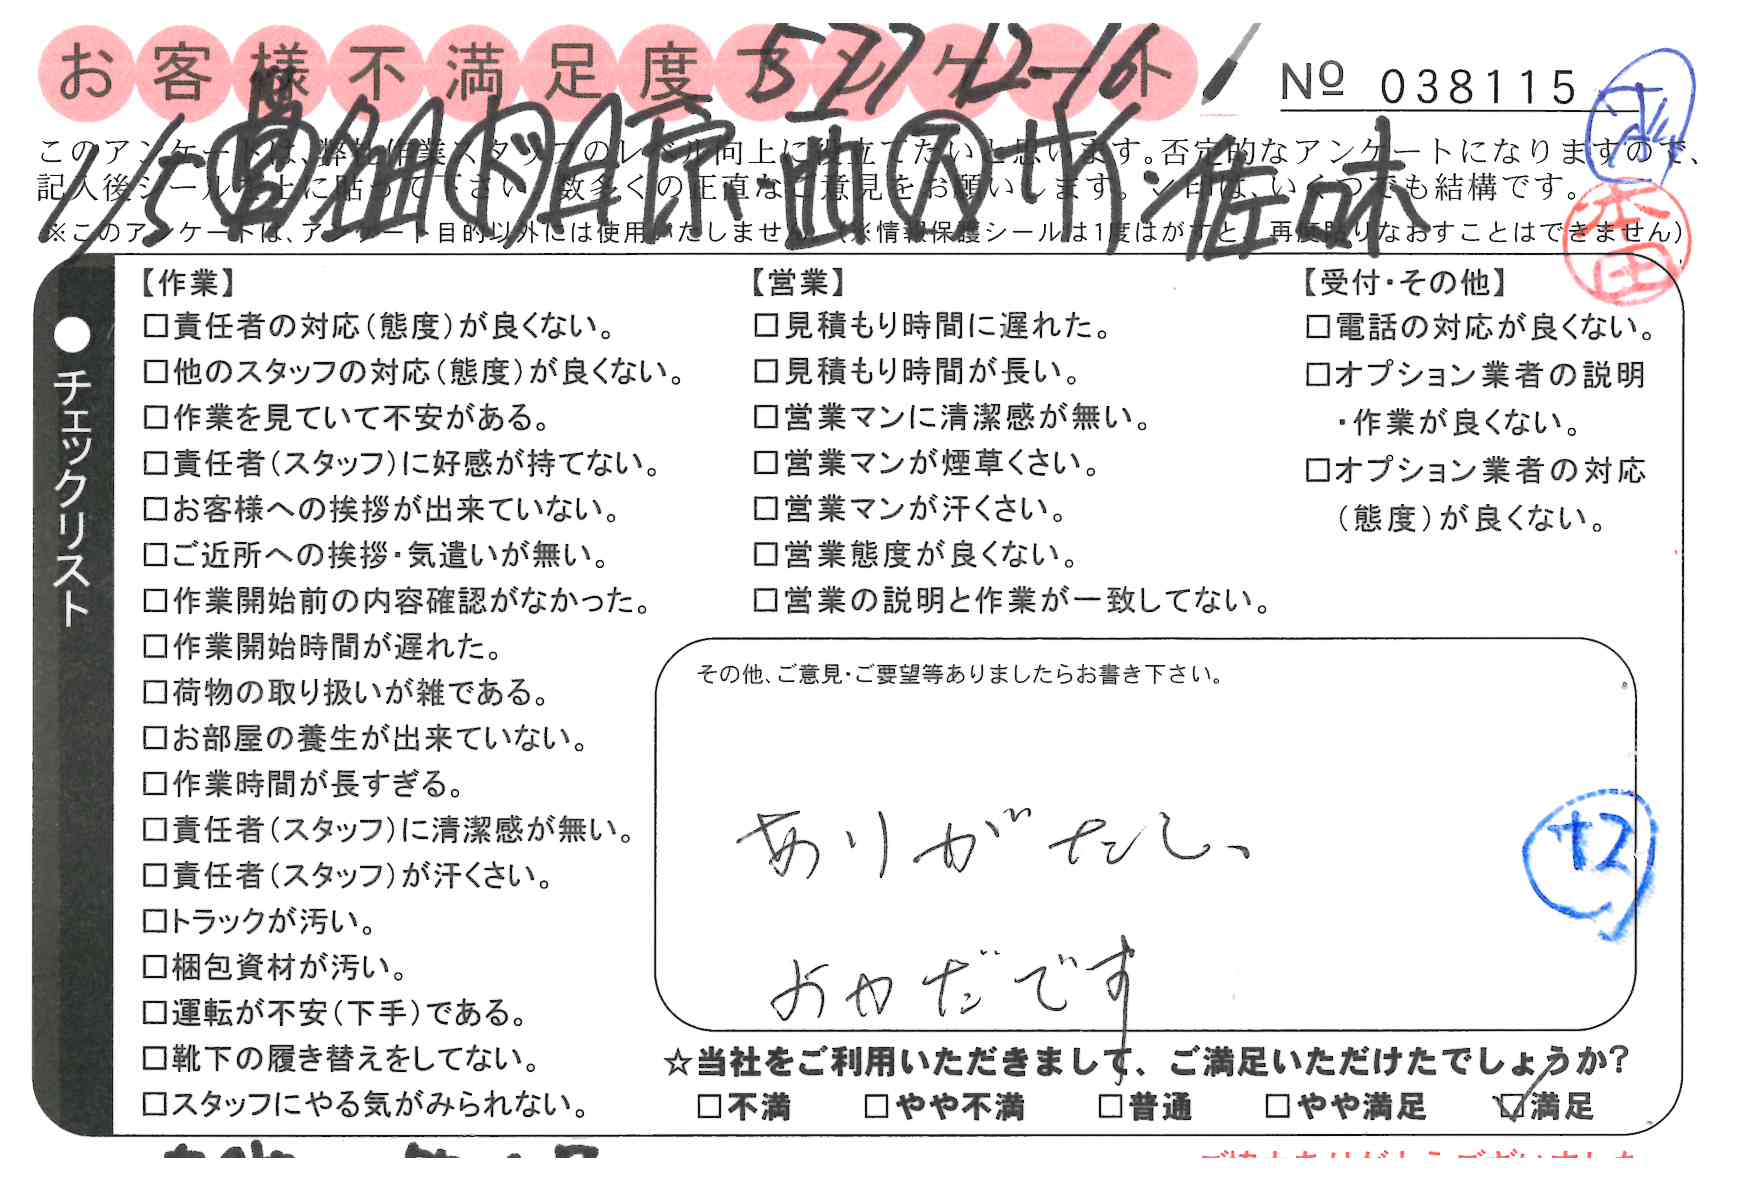 お客様不満足度アンケート
№ 038115
このアンケートは、弊社作業スタッフのレベル向上に役立てたいと思います。否定的なアンケートになりますので、
記入後シールを上に貼って下さい。数多くの正直なご意見をお願いします。✓印は、いくつでも結構です。
※このアンケートは、アンケート目的以外には使用いたしません。(※情報保護シールは1度はがすと、再度貼りなおすことはできません)
本田
●チェックリスト
【作業】
□責任者の対応(態度)が良くない。
□他のスタッフの対応(態度)が良くない。
□作業を見ていて不安がある。
□責任者(スタッフ)に好感が持てない。
□お客様への挨拶が出来ていない。
□ご近所への挨拶・気遣いが無い。
□作業開始前の内容確認がなかった。
□作業開始時間が遅れた。
□荷物の取り扱いが雑である。
□お部屋の養生が出来ていない。
□作業時間が長すぎる。
□責任者(スタッフ)に清潔感が無い。
□責任者(スタッフ)が汗くさい。
□トラックが汚い。
□梱包資材が汚い。
□運転が不安(下手)である。
□靴下の履き替えをしてない。
□スタッフにやる気がみられない。
【営業】
□見積もり時間に遅れた。
□見積もり時間が長い。
□営業マンに清潔感が無い。
□営業マンが煙草くさい。
□営業マンが汗くさい。
□営業態度が良くない。
□営業の説明と作業が一致してない。
【受付・その他】
□電話の対応が良くない。
□オプション業者の説明
・作業が良くない。
□オプション業者の対応
(態度)が良くない。
その他、ご意見・ご要望等ありましたらお書き下さい。
ありがたし、
おかだです
+2
☆当社をご利用いただきまして、ご満足いただけたでしょうか?
□不満 □やや不満 □普通 □やや満足 ☑満足